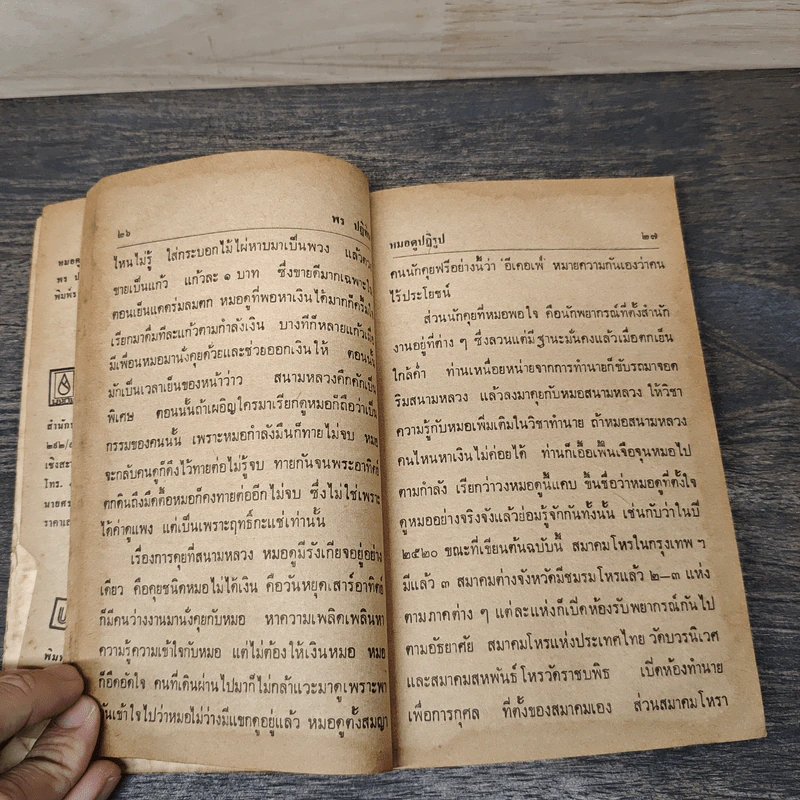 หมอดู
พร ป
พิมพ์ร
สำนัก
๒๙๒/
เชิงสะ
โทร.
นายศร
ราคาเล
พิม
๒๖ พร ปฏิ
ไหนไม่รู้ ใส่กระบอกไม้ไผ่หาบมาเป็นพวง แล้ว
ขายเป็นแก้ว แก้วละ ๑ บาท ซึ่งขายดีมากเฉพาะ
ตอนเย็นแดดร่มลมตก หมอดูที่พอหาเงินได้มากก็ครึ้มใจ
เรียกมาดื่มทีละแก้วตามกำลังเงิน บางทีก็หลายแก้วเมื่อ
มีเพื่อนหมอมานั่งคุยด้วยและช่วยออกเงินให้ ตอนนั้น
มักเป็นเวลาเย็นของหน้าว่าว สนามหลวงคึกคักเป็น
พิเศษ ตอนนั้นถ้าเผอิญใครมาเรียกดูหมอก็ถือว่าเป็น
กรรมของคนนั้น เพราะหมอกำลังมึนก็ทายไม่จบ หมอ
จะกลับคนดูก็ดึงไว้ทายต่อไม่รู้จบ ทายกันจนพระอาทิตย์
ตกดินถึงมืดตื้อหมอก็คงทายต่ออีกไม่จบ ซึ่งไม่ใช่เพราะ
ได้ค่าดูแพง แต่เป็นเพราะฤทธิ์กะแช่เท่านั้น
เรื่องการคุยที่สนามหลวง หมอดูมีรังเกียจอยู่อย่าง
เดียว คือคุยชนิดหมอไม่ได้เงิน คือวันหยุดเสาร์อาทิตย์
ก็มีคนว่างงานมานั่งคุยกับหมอ หาความเพลิดเพลินหา
ความรู้ความเข้าใจกับหมอ แต่ไม่ต้องให้เงินหมอ หมอ
ก็อึดอัดใจ คนที่เดินผ่านไปมาก็ไม่กล้าแวะมาดูเพราะพา
กันเข้าใจไปว่าหมอไม่ว่างมีแขกดูอยู่แล้ว หมอดูตั้งสมญา
หมอดูปฏิรูป ๒๗
คนนักคุยฟรีอย่างนี้ว่า 'อีเดอเฟ่' หมายความกันเองว่าคน
ไร้ประโยชน์
ส่วนนักคุยที่หมอพอใจ คือนักพยากรณ์ที่ตั้งสำนัก
งานอยู่ที่ต่าง ๆ ซึ่งล้วนแต่มีฐานะมั่นคงแล้วเมื่อตกเย็น
ใกล้ค่ำ ท่านเหนื่อยหน่ายจากการทำนายก็ขับรถมาจอด
ริมสนามหลวง แล้วลงมาคุยกับหมอสนามหลวง ให้วิชา
ความรู้กับหมอเพิ่มเติมในวิชาทำนาย ถ้าหมอสนามหลวง
คนไหนหาเงินไม่ค่อยได้ ท่านก็เอื้อเฟื้อเจือจุนหมอไป
ตามกำลัง เรียกว่าวงหมอดูนี้แคบ ขึ้นชื่อว่าหมอดูที่ตั้งใจ
ดูหมออย่างจริงจังแล้วย่อมรู้จักกันทั้งนั้น เช่นกับว่าในปี
๒๕๒๐ ขณะที่เขียนต้นฉบับนี้ สมาคมโหรในกรุงเทพ ฯ
มีแล้ว ๓ สมาคมต่างจังหวัดมีชมรมโหรแล้ว ๒–๓ แห่ง
ตามภาคต่าง ๆ แต่ละแห่งก็เปิดห้องรับพยากรณ์กันไป
ตามอัธยาศัย สมาคมโหรแห่งประเทศไทย วัดบวรนิเวศ
และสมาคมสหพันธ์โหรวัดราชบพิธ เปิดห้องทำนาย
เพื่อการกุศล ที่ตั้งของสมาคมเอง ส่วนสมาคมโหรา